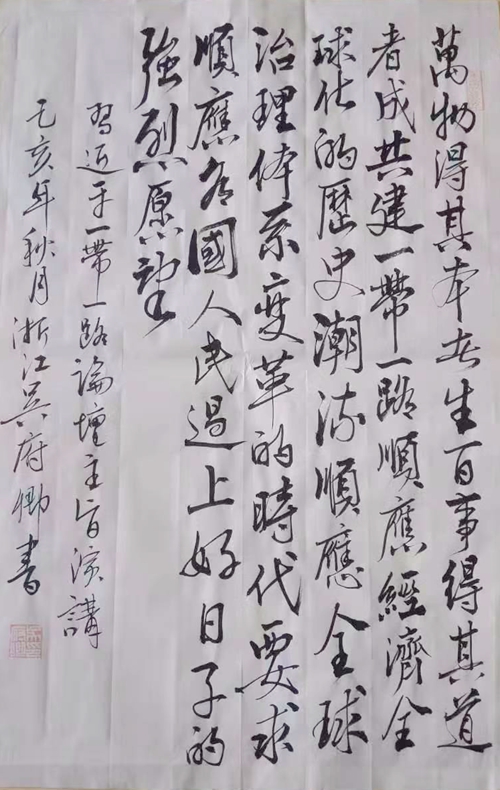 萬物得其本者生百事得其道
者成共建一帶一路順應經濟全
球化的歷史潮流順應全球
治理体系變革的時代要求
順應各國人民過上好日子的
強烈原望
習近平一帶一路論壇主旨演講
乙亥年秋月浙江吴府卿書